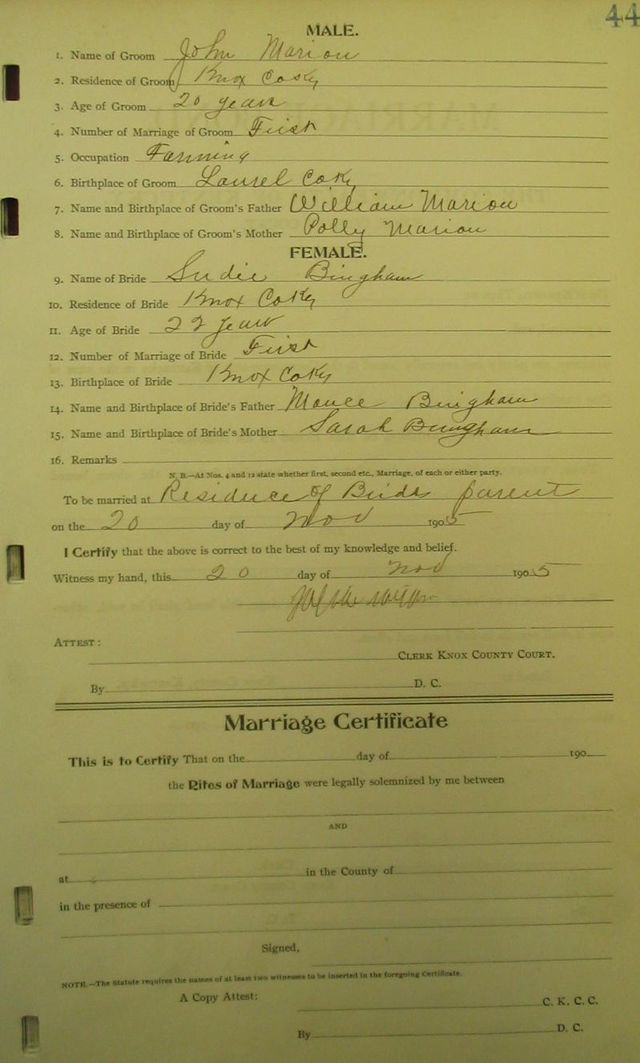 44
MALE.
1. Name of Groom John Marion
2. Residence of Groom Knox Co Ky
3. Age of Groom 20 years
4. Number of Marriage of Groom First
5. Occupation Farming
6. Birthplace of Groom Laurel Co Ky
7. Name and Birthplace of Groom's Father William Marion
8. Name and Birthplace of Groom's Mother Polly Marion
FEMALE.
9. Name of Bride Sudie Bingham
10. Residence of Bride Knox Co Ky
11. Age of Bride 22 years
12. Number of Marriage of Bride First
13. Birthplace of Bride Knox Co Ky
14. Name and Birthplace of Bride's Father Bingham
15. Name and Birthplace of Bride's Mother Sarah Bingham
16. Remarks
N. B.—At Nos. 4 and 12 state whether first, second etc., Marriage, of each or either party.
To be married at Residence of Brids parent
on the 20 day of Nov 1905
I Certify that the above is correct to the best of my knowledge and belief.
Witness my hand, this 20 day of Nov 1905
ATTEST:
CLERK KNOX COUNTY COURT.
By D. C.
Marriage Certificate
This is to Certify That on the day of 190
the Rites of Marriage were legally solemnized by me between
AND
at in the County of
in the presence of
Signed,
NOTE.—The Statute requires the names of at least two witnesses to be inserted in the foregoing Certificate.
A Copy Attest: C. K. C. C.
By D. C.